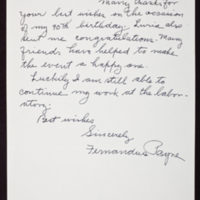 Many thanks for
your best wishes on the occasion
of my 90th birthday. Luria also
sent me congratulations. Many
friends have helped to make
the event a happy one.
Luckily I am still able to
continue my work at the labor-
atory.
Best wishes
Sincerely
Fernandus Payne